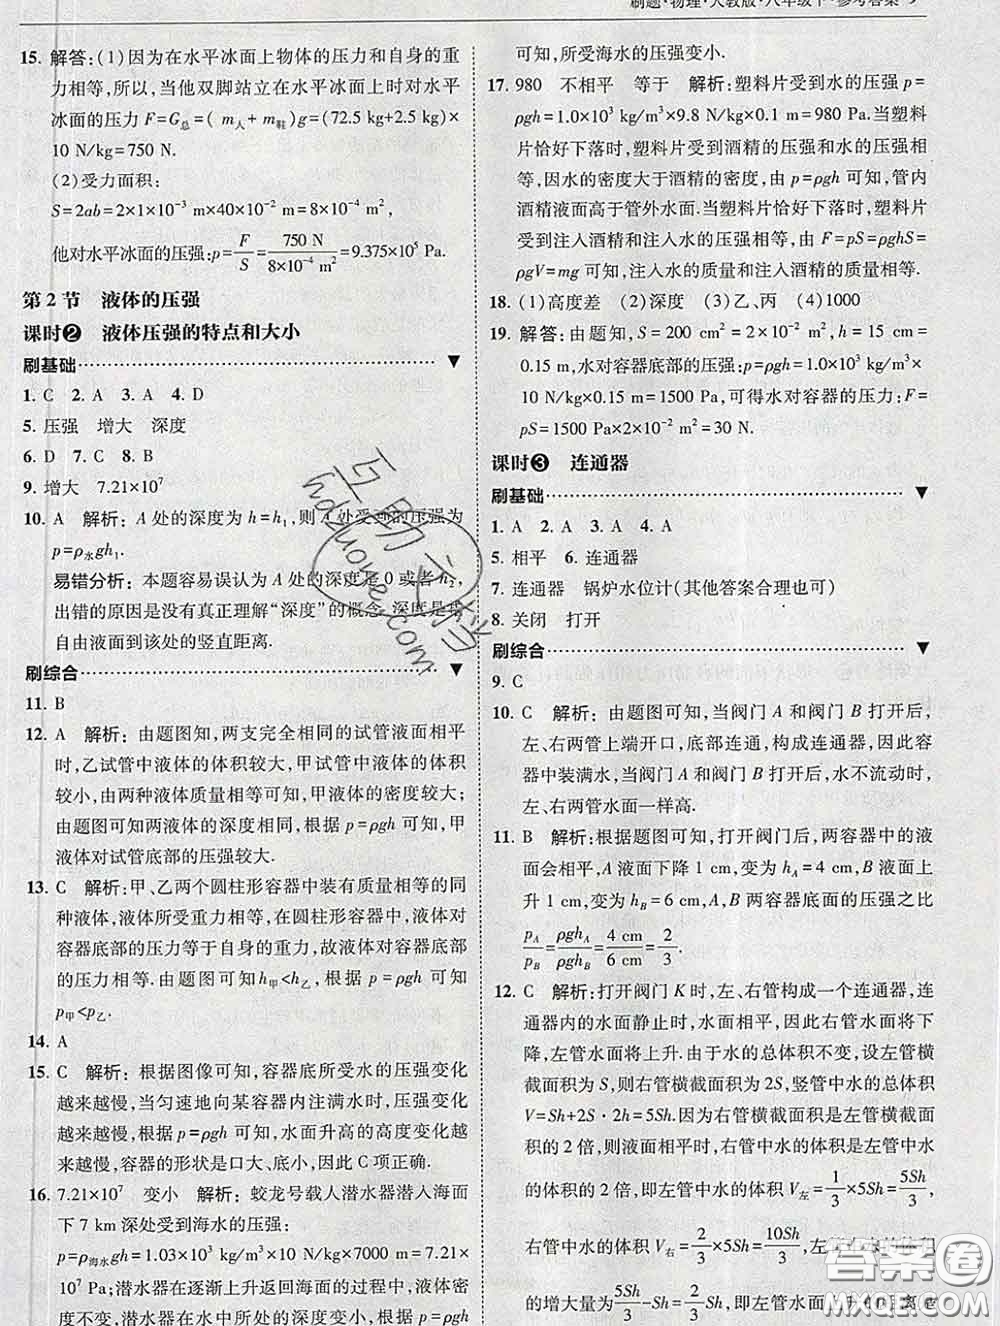 刷题·物理·人教版·八年级下·参考答案
15. 解答:(1)因为在水平冰面上物体的压力和自身的重
力相等,所以,当他双脚站立在水平冰面上时对水平
冰面的压力 F=G总=( m人+ m鞋)g=(72.5 kg+2.5 kg)×
10 N/kg=750 N.
(2)受力面积:
S=2ab=2×1×10⁻³ m×40×10⁻² m=8×10⁻⁴ m²,
他对水平冰面的压强:p=F/S=750 N/8×10⁻⁴ m²=9.375×10⁵ Pa.
第 2 节 液体的压强
课时❷ 液体压强的特点和大小
刷基础
1. C 2. A 3. A 4. D
5. 压强 增大 深度
6. D 7. C 8. B
9. 增大 7.21×10⁷
10. A 解析:A 处的深度为 h=h₁,则 A 处受到的压强为
p=ρ水gh₁.
易错分析:本题容易误认为 A 处的深度是 0 或者 h₂,
出错的原因是没有真正理解“深度”的概念,深度是指
自由液面到该处的竖直距离.
刷综合
11. B
12. A 解析:由题图知,两支完全相同的试管液面相平
时,乙试管中液体的体积较大,甲试管中液体的体积
较小,由两种液体质量相等可知,甲液体的密度较大;
由题图可知两液体的深度相同,根据 p=ρgh 可知,甲
液体对试管底部的压强较大.
13. C 解析:甲、乙两个圆柱形容器中装有质量相等的同
种液体,液体所受重力相等,在圆柱形容器中,液体对
容器底部的压力等于自身的重力,故液体对容器底部
的压力相等.由题图可知h甲<h乙,根据 p=ρgh 可知
p甲<p乙.
14. A
15. C 解析:根据图像可知,容器底所受水的压强变化
越来越慢,当匀速地向某容器内注满水时,压强变化
越来越慢,根据 p=ρgh 可知,水面升高的高度变化越
来越慢,容器的形状是口大、底小,因此 C 项正确.
16. 7.21×10⁷ 变小 解析:蛟龙号载人潜水器潜入海面
下 7 km 深处受到海水的压强:
p=ρ海水gh=1.03×10³ kg/m³×10 N/kg×7000 m=7.21×
10⁷ Pa;潜水器在逐渐上升返回海面的过程中,液体密
度不变,潜水器在水中所处的深度变小,根据 p=ρgh
可知,所受海水的压强变小.
17. 980 不相平 等于 解析:塑料片受到水的压强 p=
ρgh=1.0×10³ kg/m³×9.8 N/kg×0.1 m=980 Pa.当塑
料片恰好下落时,塑料片受到酒精的压强和水的压强相
等,因水的密度大于酒精的密度,由 p=ρgh 可知,管内
酒精液面高于管外水面.当塑料片恰好下落时,塑料片
受到注入酒精和注入水的压强相等,由 F=pS=ρghS=
ρgV=mg 可知,注入水的质量和注入酒精的质量相等.
18. (1)高度差 (2)深度 (3)乙、丙 (4)1000
19. 解答:由题知,S=200 cm²=2×10⁻² m²,h=15 cm=
0.15 m,水对容器底部的压强:p=ρgh=1×10³ kg/m³×
10 N/kg×0.15 m=1500 Pa,可得水对容器的压力:F=
pS=1500 Pa×2×10⁻² m²=30 N.
课时❸ 连通器
刷基础
1. A 2. A 3. A 4. A
5. 相平 6. 连通器
7. 连通器 锅炉水位计(其他答案合理也可)
8. 关闭 打开
刷综合
9. C
10. C 解析:由题图可知,当阀门 A 和阀门 B 打开后,
左、右两管上端开口,底部连通,构成连通器,因此容
器中装满水,当阀门 A 和阀门 B 打开后,水不流动时,
左、右两管水面一样高.
11. B 解析:根据题图可知,打开阀门后,两容器中的液
面会相平,A 液面下降 1 cm,变为 hA=4 cm,B 液面上
升 1 cm,变为 hB=6 cm,A、B 液面的压强之比
pA/pB=ρghA/ρghB=4 cm/6 cm=2/3.
12. C 解析:打开阀门 K 时,左、右管构成一个连通器,连
通器内的水面静止时,水面相平,因此右管水面将下
降,左管水面将上升.由于水的总体积不变,设左管横
截面积为 S,则右管横截面积为 2S,竖管中水的总体积
V=Sh+2S·2h=5Sh.因为右管横截面积是左管横截面
积的 2 倍,则液面相平时,右管中水的体积是左管中水
的体积的 2 倍,即左管中水的体积 V左=1/3×5Sh=5Sh/3,
右管中水的体积 V右=2/3×5Sh=10Sh/3,左管水的体积
的增大量为5Sh/3-Sh=2/3Sh,
互助文档
hdzuoye.com
答案圈
MXQE.COM